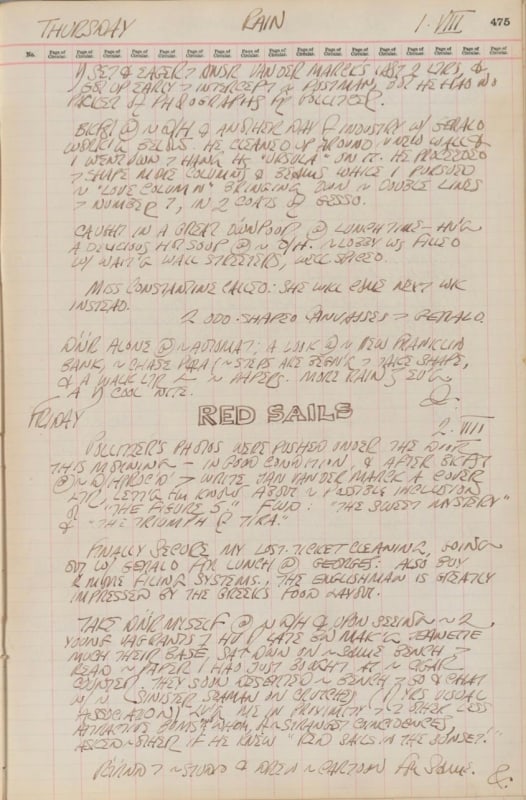 THURSDAY RAIN 1·VIII 475
No. Page of Circular. Page of Circular. Page of Circular. Page of Circular. Page of Circular. Page of Circular. Page of Circular. Page of Circular. Page of Circular. Page of Circular. Page of Circular. Page of Circular. Page of Circular. Page of Circular.
SET & EAGER > ANSR VAN DER MARCK'S LAST 2 LTRS, &
GET UP EARLY > INTERCEPT ~ POSTMAN, BUT HE HAD NO
PACKET OF PHOTOGRAPHS BY POLLITZER.
BKFST @ ~ D/H & ANOTHER DAY OF INDUSTRY W/ GERALD
WORKING BELOW. HE CLEANED UP AROUND ~ NEW WALL &
I WENT DOWN > HANG HIS "URSULA" ON IT. HE PROCEEDED
> SHAPE MORE COLUMNS & BEAMS WHILE I PURSUED
~ "LOVE COLUMN" BRINGING DOWN ~ DOUBLE LINES
> NUMBER 7, IN 2 COATS OF GESSO.
CAUGHT IN A GREAT DOWNPOUR @ LUNCHTIME - HV'G
A DELICIOUS HOT SOUP @ ~ D/H. ~ LOBBY WS FILLED
W/ WAIT'G WALL STREETERS, WELL SPICED.
MISS CONSTANTINE CALLED: SHE WILL COME NEXT WK
INSTEAD.
2 ODD-SHAPED CANVASSES > GERALD.
DIN'R ALONE @ ~ AUTOMAT; A LOOK @ ~ NEW FRANKLIN
BANK, ~ CHASE PLAZA (~ STEPS ARE BEGIN'G > TAKE SHAPE,
& A WALK LTR ~ PAPERS. MORE RAIN
A COOL NITE.
FRIDAY RED SAILS 2·VIII
POLLITZER'S PHOTOS WERE PUSHED UNDER THE DOOR
THIS MORNING — IN GOOD CONDITION, & AFTER BKFST
@ ~ D/H PROC'D > WRITE JAN VAN DER MARCK A COVER
LTR, LETT'G HIM KNOW ABOUT ~ POSSIBLE INCLUSION
OF "THE FIGURE 5." FWD: "THE SWEET MYSTERY"
& "THE TRIUMPH OF TIRA."
FINALLY SECURE MY LOST-TICKET CLEANING, GOING
OUT W/ GERALD FOR LUNCH @ GEORGE'S: ALSO BUY
MORE FILING SYSTEMS. THE ENGLISHMAN IS GREATLY
IMPRESSED BY THE GREEK'S FOOD LAYOUT.
TAKE DIN'R MYSELF @ ~ D/H & UPON SEEING ~ 2
YOUNG VAGRANTS LATE MAK'G JEANETTE
MUCH THEIR BASE SAT DOWN ON ~ SAME BENCH >
READ ~ PAPER I HAD JUST BOUGHT AT ~ CIGAR
COUNTER. THEY SOON DESERTED ~ BENCH > GO & CHAT
W/ ~ SINISTER SEAMAN ON CRUTCHES (YRS USUAL
ASSOCIATION) LEAV'G ME IN PROXIMITY > 2 OTHER LESS
ATTRACTIVE BUMS WHOM, IN STRANGEST COINCIDENCES,
ASKED ~ OTHER IF HE KNEW "RED SAILS IN THE SUNSET!"
RETURN'D > ~ STUDIO & DREW ~ CARTOON FOR SAME.